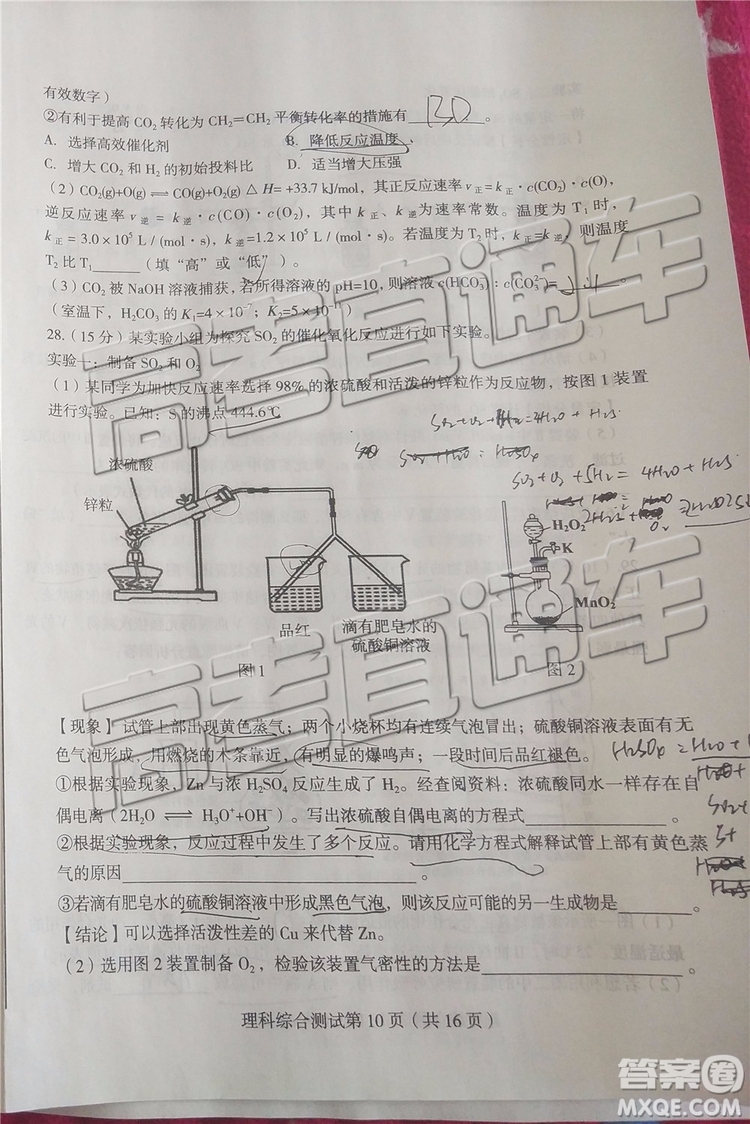 有效数字）
②有利于提高 CO₂ 转化为 CH₂=CH₂ 平衡转化率的措施有 BD 。
A．选择高效催化剂 B．降低反应温度
C．增大 CO₂ 和 H₂ 的初始投料比 D．适当增大压强
（2）CO₂(g)+O(g) ⇌ CO(g)+O₂(g) △H= +33.7 kJ/mol，其正反应速率 v正=k正·c(CO₂)·c(O)，
逆反应速率 v逆=k逆·c(CO)·c(O₂)，其中 k正、k逆为速率常数。温度为 T₁ 时，
k正= 3.0×10⁵ L /（mol·s），k逆=1.2×10⁵ L /（mol·s）。若温度为 T₂ 时，k正= k逆，则温度
T₂ 比 T₁______（填“高”或“低”）。
（3）CO₂ 被 NaOH 溶液捕获，若所得溶液的 pH=10，则溶液 c(HCO₃⁻) : c(CO₃²⁻)=
（室温下，H₂CO₃ 的 K₁=4×10⁻⁷；K₂=5×10⁻¹¹）
28.（15 分）某实验小组为探究 SO₂ 的催化氧化反应进行如下实验。
实验一：制备 SO₂ 和 O₂
（1）某同学为加快反应速率选择 98% 的浓硫酸和活泼的锌粒作为反应物，按图 1 装置
进行实验。已知：S 的沸点 444.6℃
浓硫酸
锌粒
品红
滴有肥皂水的
硫酸铜溶液
H₂O₂
K
MnO₂
图 1
图 2
【现象】试管上部出现黄色蒸气；两个小烧杯均有连续气泡冒出；硫酸铜溶液表面有无
色气泡形成，用燃烧的木条靠近，有明显的爆鸣声；一段时间后品红褪色。
①根据实验现象，Zn 与浓 H₂SO₄ 反应生成了 H₂。经查阅资料：浓硫酸同水一样存在自
偶电离（2H₂O ⇌ H₃O⁺+OH⁻）。写出浓硫酸自偶电离的方程式______________。
②根据实验现象，反应过程中发生了多个反应。请用化学方程式解释试管上部有黄色蒸
气的原因______________。
③若滴有肥皂水的硫酸铜溶液中形成黑色气泡，则该反应可能的另一生成物是______。
【结论】可以选择活泼性差的 Cu 来代替 Zn。
（2）选用图 2 装置制备 O₂，检验该装置气密性的方法是______________
理科综合测试第 10 页（共 16 页）
高考直通车
高考直通车
高考直通车
答案圈
MXQE.COM